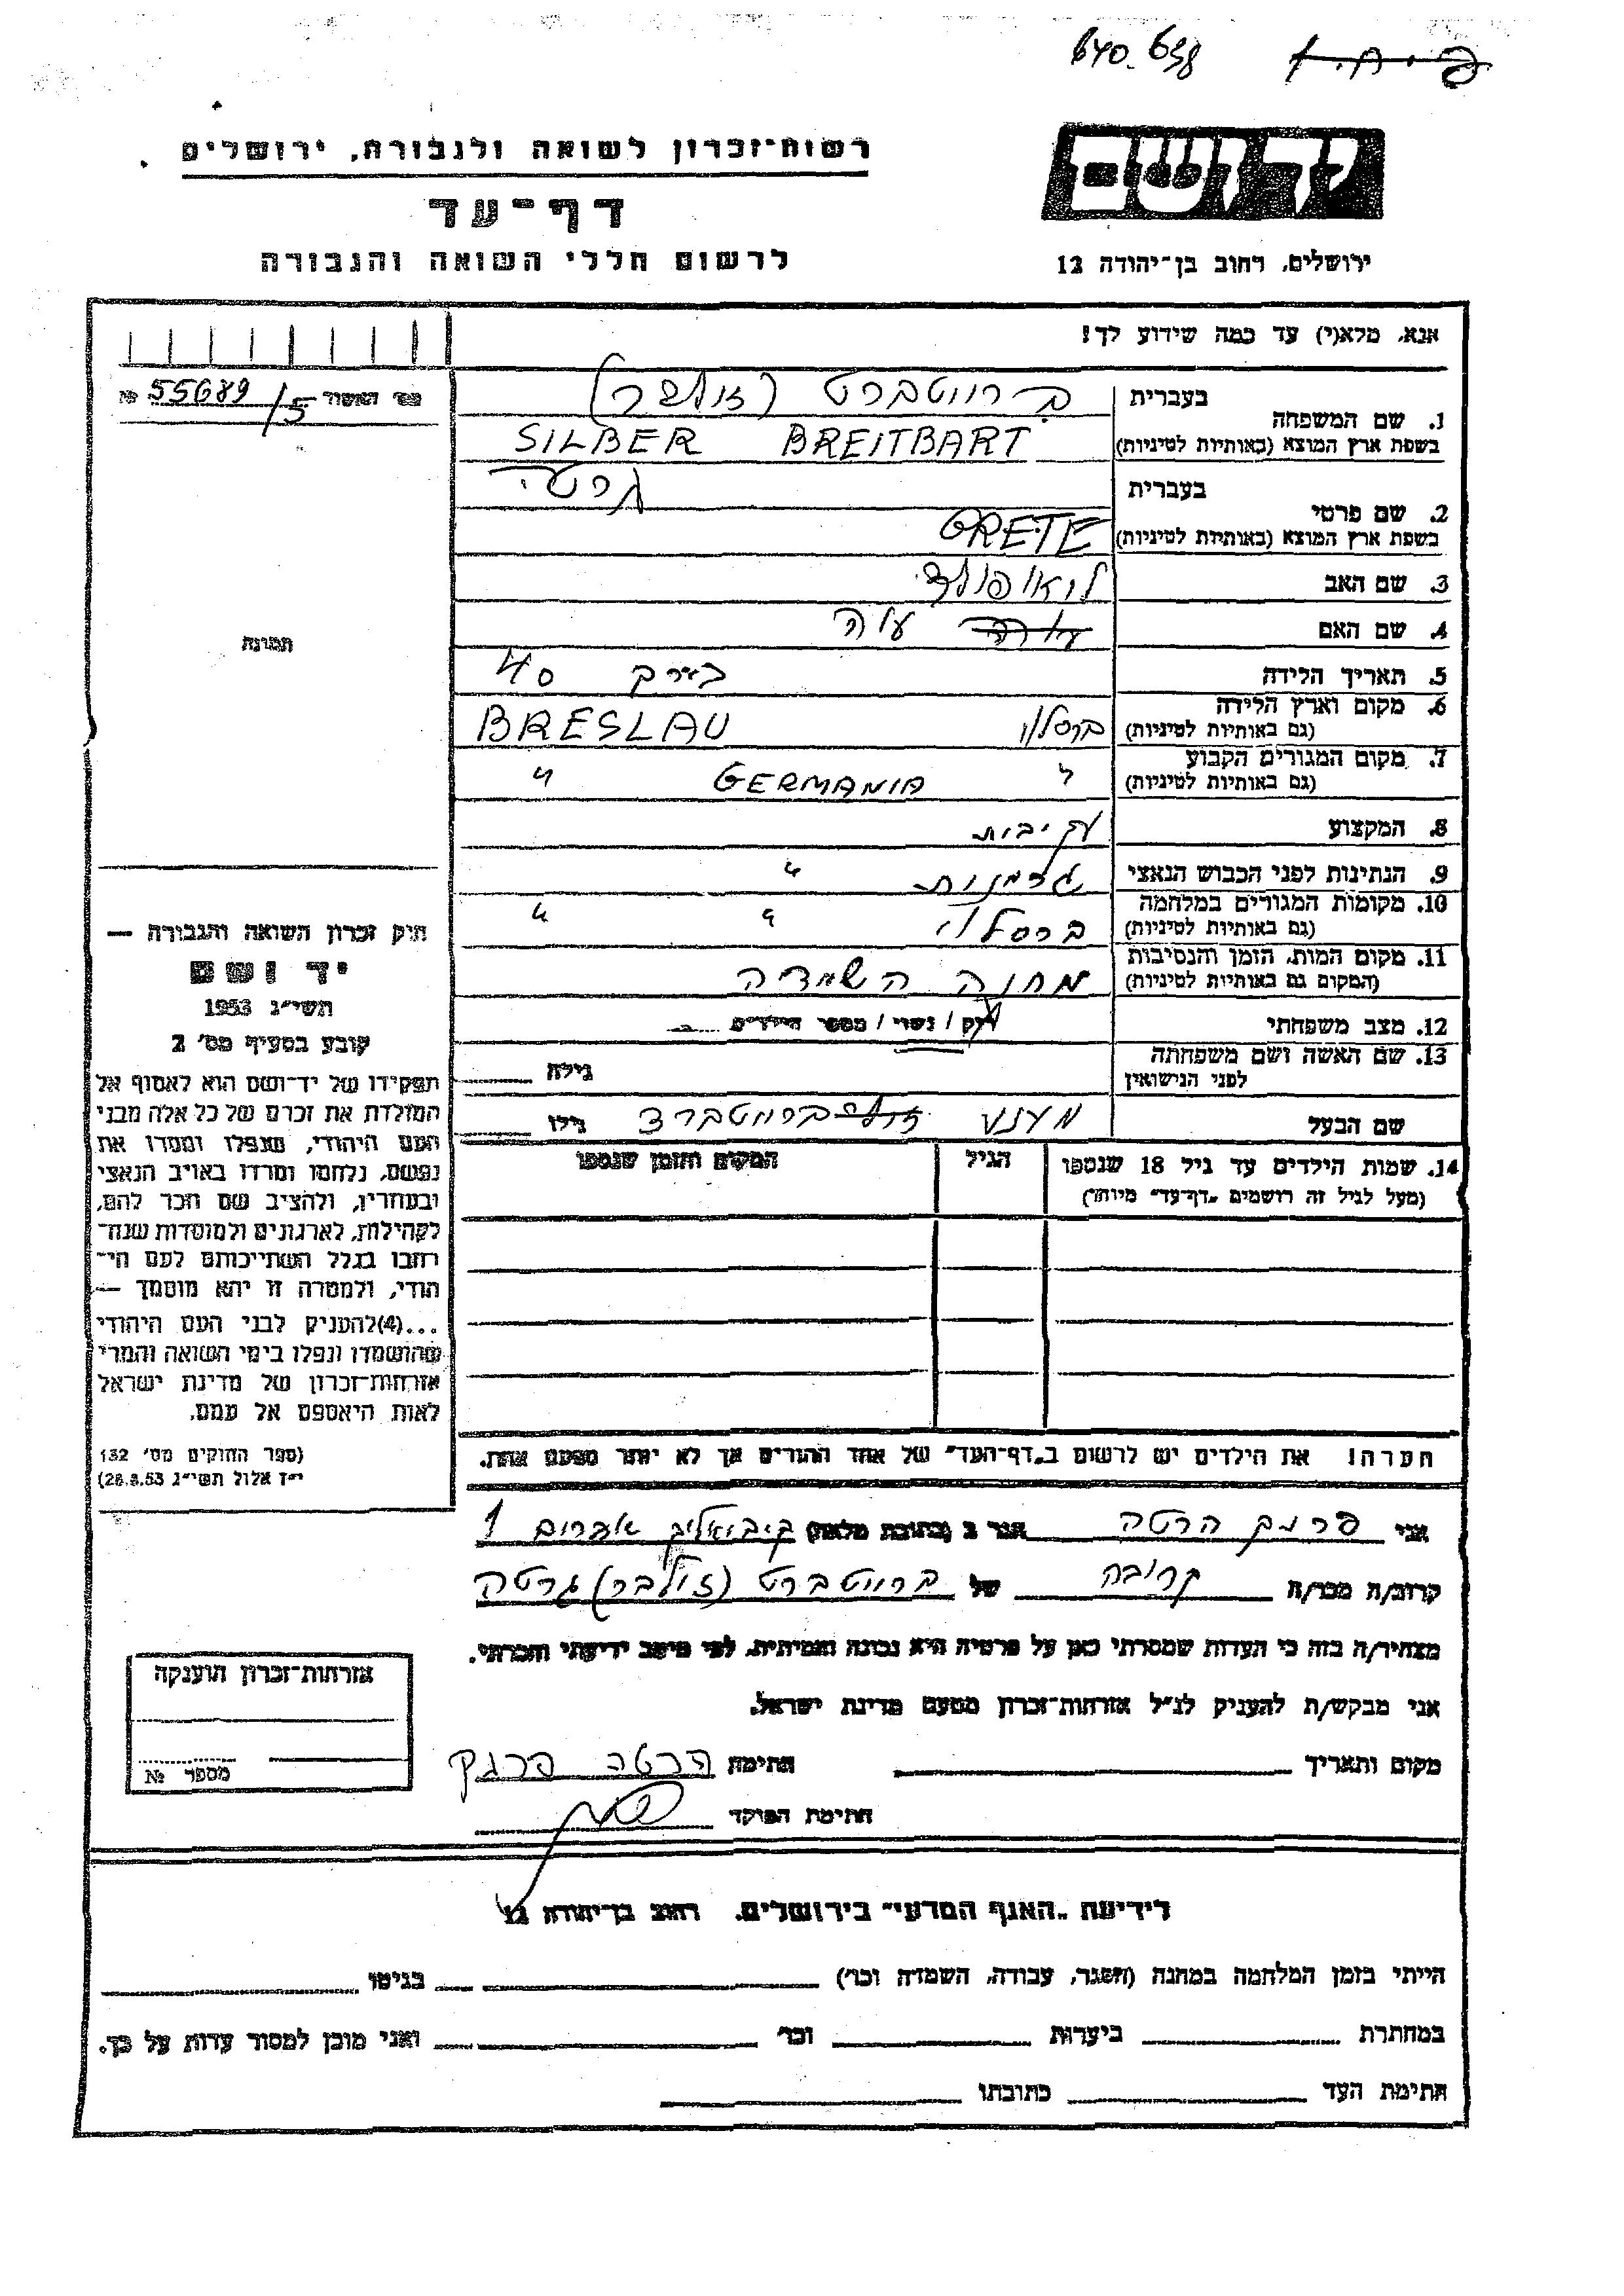 640-638
רשות-זכרון לשואה ולגבורה, ירושלים
דף-עד
לרשום חללי השואה והגבורה
יד ושם
ירושלים, רחוב בן-יהודה 12
אנא, מלא(י) עד כמה שידוע לך!
מס' האשור № 55689/5
תמונה
1. שם המשפחה בעברית ברייטברט (זילבר)
בשפת ארץ המוצא (באותיות לטיניות) SILBER BREITBART
2. שם פרטי בעברית גרטה
בשפת ארץ המוצא (באותיות לטיניות) GRETE
3. שם האב ליאופולד
4. שם האם
5. תאריך הלידה בערך 40
6. מקום וארץ הלידה (גם באותיות לטיניות) ברסלוי BRESLAU
7. מקום המגורים הקבוע (גם באותיות לטיניות) " GERMANIA "
8. המקצוע
9. הנתינות לפני הכבוש הנאצי גרמנית "
10. מקומות המגורים במלחמה (גם באותיות לטיניות) ברסלוי " "
11. מקום המות, הזמן והנסיבות (המקום גם באותיות לטיניות) מחנה השמדה
12. מצב משפחתי רוק / נשוי / מספר הילדים
13. שם האשה ושם משפחתה לפני הנישואין גילה
שם הבעל ברייטברד גילו
14. שמות הילדים עד גיל 18 שנספו הגיל המקום והזמן שנספו
(מעל לגיל זה רושמים "דף-עד" מיוחד)
חוק זכרון השואה והגבורה —
יד ושם
תשי״ג 1953
קובע בסעיף מס' 2
תפקידו של יד-ושם הוא לאסוף אל
המולדת את זכרם של כל אלה מבני
העם היהודי, שנפלו ומסרו את
נפשם, נלחמו ומרדו באויב הנאצי
ובעוזריו, ולהציב שם וזכר להם,
לקהילות, לארגונים ולמוסדות שנח-
רבו בגלל השתייכותם לעם הי-
הודי, ולמטרה זו יהא מוסמך —
...(4)להעניק לבני העם היהודי
שהושמדו ונפלו בימי השואה והמרי
אזרחות-זכרון של מדינת ישראל
לאות היאספם אל עמם.
(ספר החוקים מס' 132
י״ז אלול תשי״ג 28.8.53)
הערה! את הילדים יש לרשום ב"דף-העד" של אחד ההורים אך לא יותר מפעם אחת.
אני פרנק הרטה הגר ב (כתובת מלאה)
קרוב/ה מכר/ה קרובה של ברייטברט (זילבר) גרטה
מצהיר/ה בזה כי העדות שמסרתי כאן על פרטיה היא נכונה ואמיתית, לפי מיטב ידיעתי והכרתי.
אני מבקש/ת להעניק לנ״ל אזרחות-זכרון מטעם מדינת ישראל.
מקום ותאריך חתימה הרטה פרנק
חתימת הפוקד
אזרחות-זכרון הוענקה
מספר №
לידיעת "האגף המדעי" בירושלים, רחוב בן-יהודה 12
הייתי בזמן המלחמה במחנה (הסגר, עבודה, השמדה וכו') בגיטו
במחתרת ביערות וכו' ואני מוכן למסור עדות על כך.
חתימת העד כתובתו